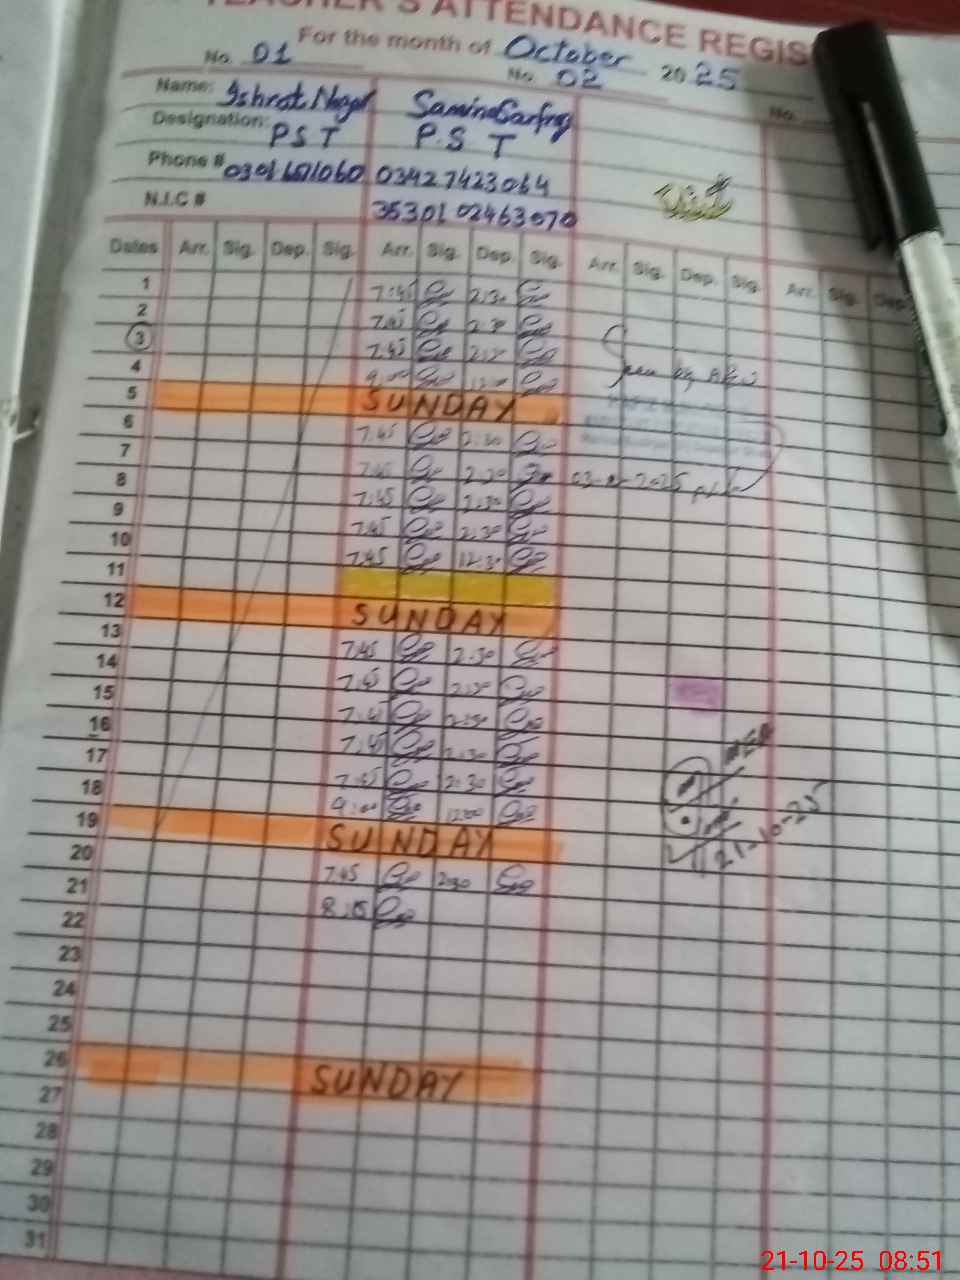 TEACHER'S ATTENDANCE REGIS
For the month of October 2025
No. 01 No. 02 No.
Name: Ishrat Samina
Designation: PST P.S T
Phone # 03427423064
N.I.C # 35301 02463070
Dates Arr. Sig. Dep. Sig. Arr. Sig. Dep. Sig. Arr. Sig. Dep. Sig. Arr. Sig. Dep
1 7:45 2:30
2 7:45 2:30
3 7:45
4 9:00 12:00
5 SUNDAY
6 7:45 2:30
7 7:45 2:30
8 7:45 2:30
9 7:45 2:30
10 7:45 12:30
11
12 SUNDAY
13 7:45 2:30
14 7:45 2:30
15 7:45 2:30
16 7:45 2:30
17 7:45 2:30
18 9:00 12:00
19 SUNDAY
20 7:45 2:30
21 8:15
22
23
24
25
26 SUNDAY
27
28
29
30
31
21-10-25
21-10-25 08:51